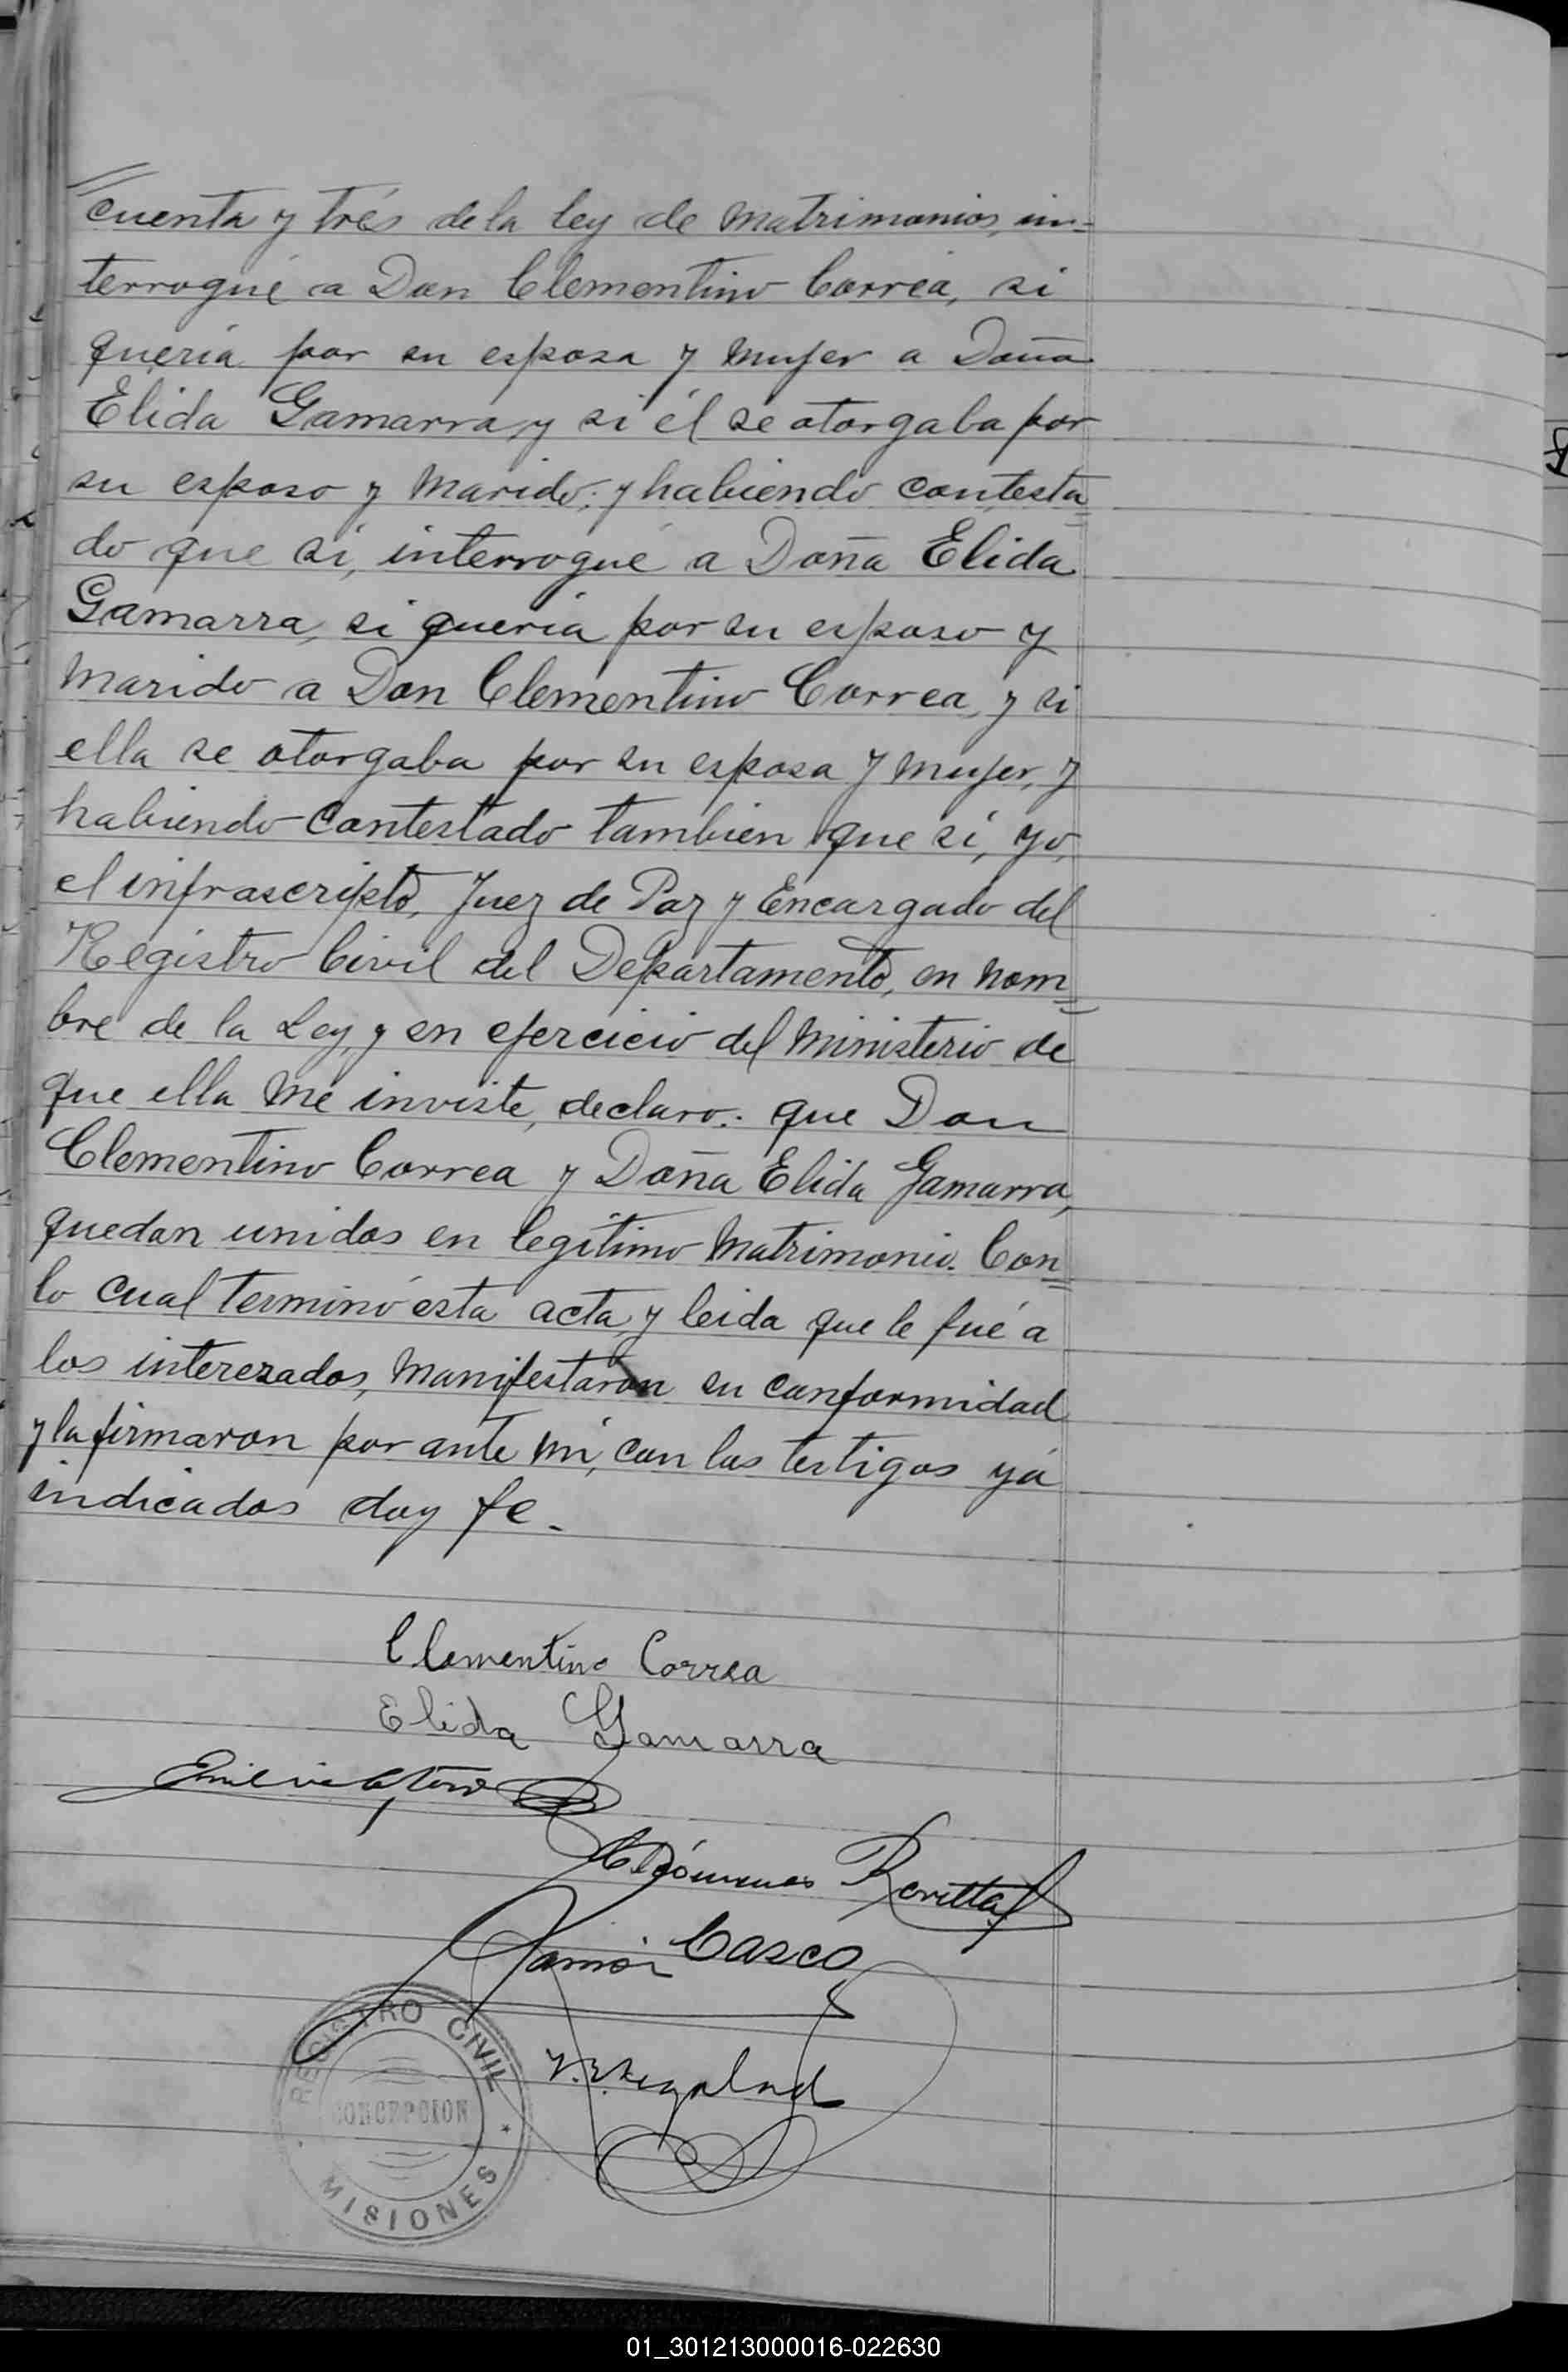 cuenta y trés de la ley de matrimonios, in=
terrogué a Don Clementino Correa, si
quería por su esposa y mujer a Doña
Elida Gamarra, y si él se otorgaba por
su esposo y marido; y habiendo contesta=
do que si, interrogué a Doña Elida
Gamarra, si queria por su esposo y
marido a Don Clementino Correa, y si
ella se otorgaba por su esposa y mujer, y
habiendo contestado tambien que sí, yo,
el infrascripto, Juez de Paz y Encargado del
Registro Civil del Departamento, en nom=
bre de la Ley, y en ejercicio del ministerio de
que ella me inviste, declaro: que Don
Clementino Correa y Doña Elida Gamarra,
quedan unidos en legítimo matrimonio. Con=
lo cual terminó esta acta, y leida que le fué a
los interezados, manifestaron su conformidad
y la firmaron por ante mi, con los testigos yá
indicados doy fe.
Clementino Correa
Elida Gamarra
Ramón Casco
REGISTRO CIVIL
CONCEPCION
MISIONES
01_301213000016-022630